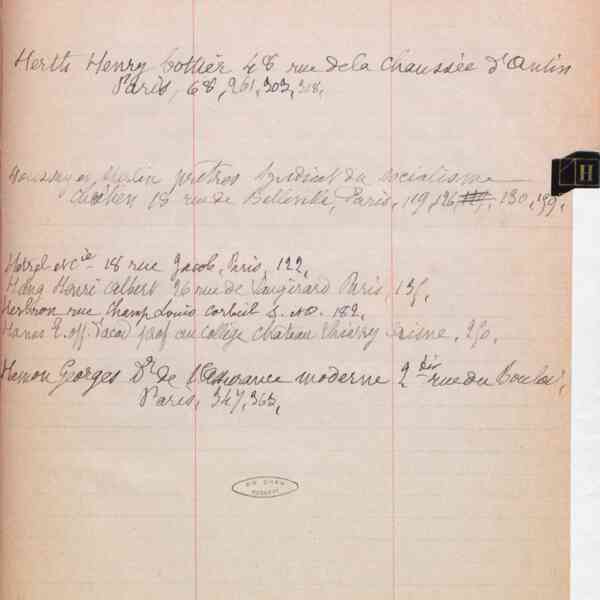 Herth Henry bottier 48 rue de la Chaussée d'Antin
Paris, 68, 261, 303, 318,
prêtres Syndicat du socialisme
chrétien 18 rue de Belleville, Paris, 119, 126, 130, 139,
H
Hetzel et Cie 18 rue Jacob, Paris, 122,
Haug Henri Albert 26 rue de Vaugirard Paris, 135,
Herbron rue Champ Louis Corbeil S. &. O. 182,
E. off. d'acad prof au collège Chateau Thierry Aisne, 250,
Hamon Georges Dr de l'Assurance moderne 2 bis rue du Bouloi,
Paris, 347, 363,